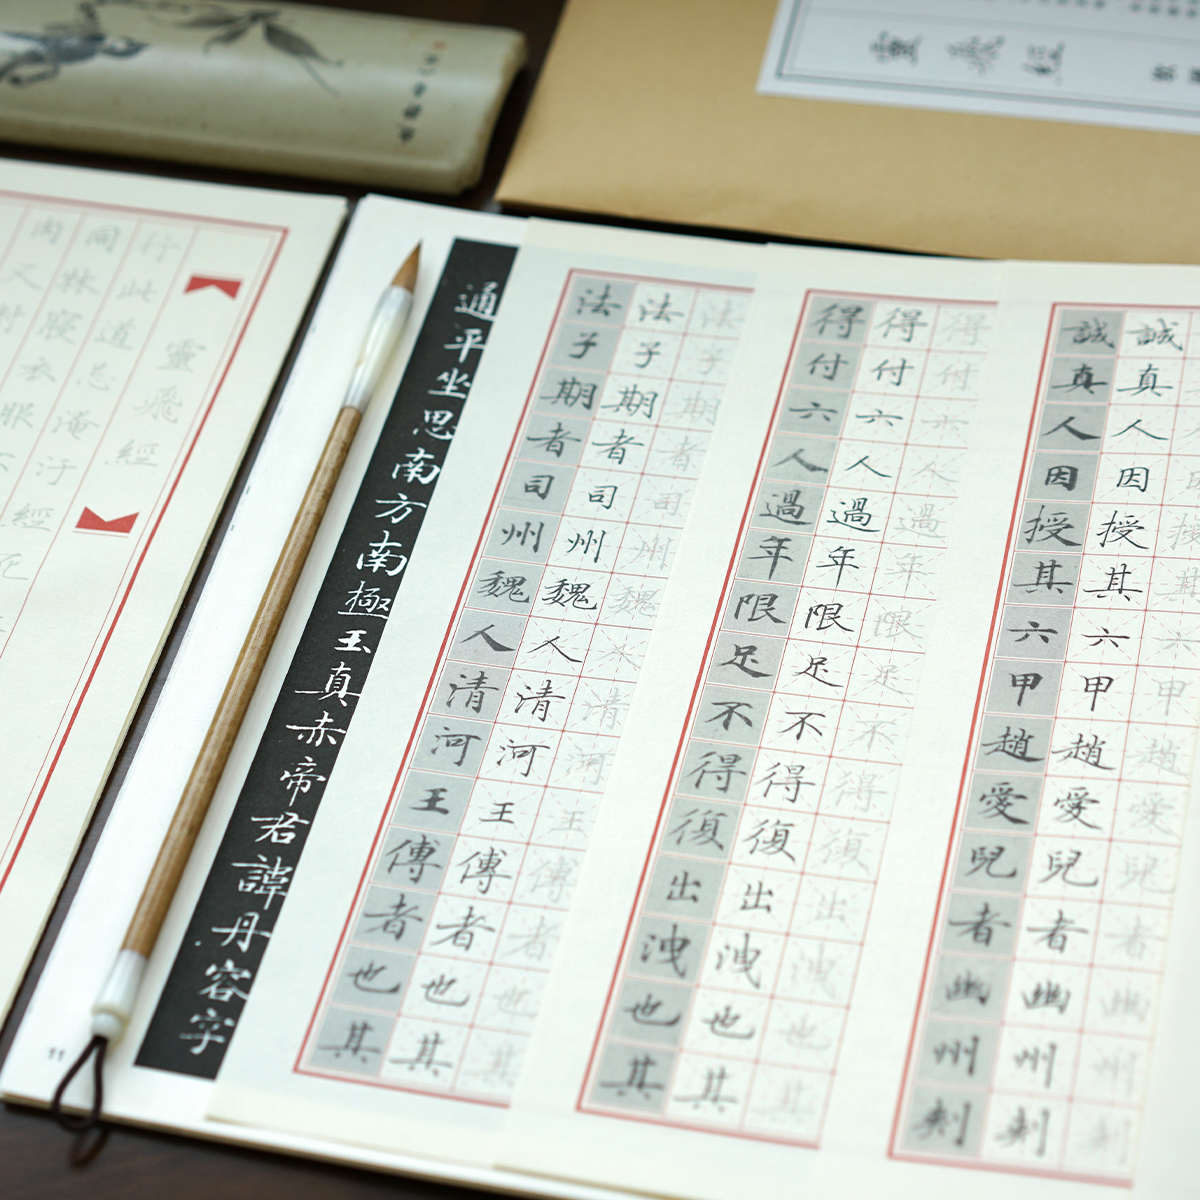 靈飛經
靈飛經
行此道忌淹汙經死
同床寢衣服
肉又對
通平坐思南方南極玉真赤帝君諱丹容字
法子期者司州魏人清河王傳者也其
法子期者司州魏人清河王傳者也其
法子期者司州魏人清河王傳者也其
得付六人過年限足不得復出洩也其
得付六人過年限足不得復出洩也其
得付六人過年限足不得復出洩也其
誠真人因授其六甲趙愛兒者幽州刺
誠真人因授其六甲趙愛兒者幽州刺
授其六甲趙愛兒者幽州刺
11